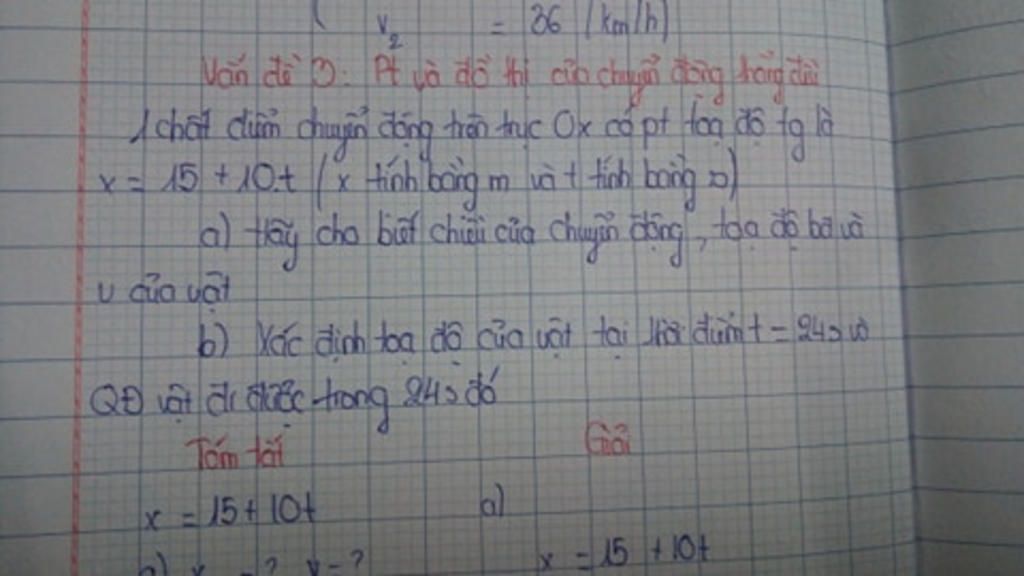 v₂ = 36 (km/h)
Vấn đề 3: Pt và đồ thị của chuyển động thẳng đều
1 chất điểm chuyển động trên trục Ox có pt toạ độ tg là
x = 15 + 10t (x tính bằng m và t tính bằng s)
a) Hãy cho biết chiều của chuyển động, toạ độ bđ và
v của vật
b) Xác định toạ độ của vật tại thời điểm t = 24s và
QĐ vật đi được trong 24s đó
Tóm tắt Giải
x = 15 + 10t a)
x = 15 + 10t